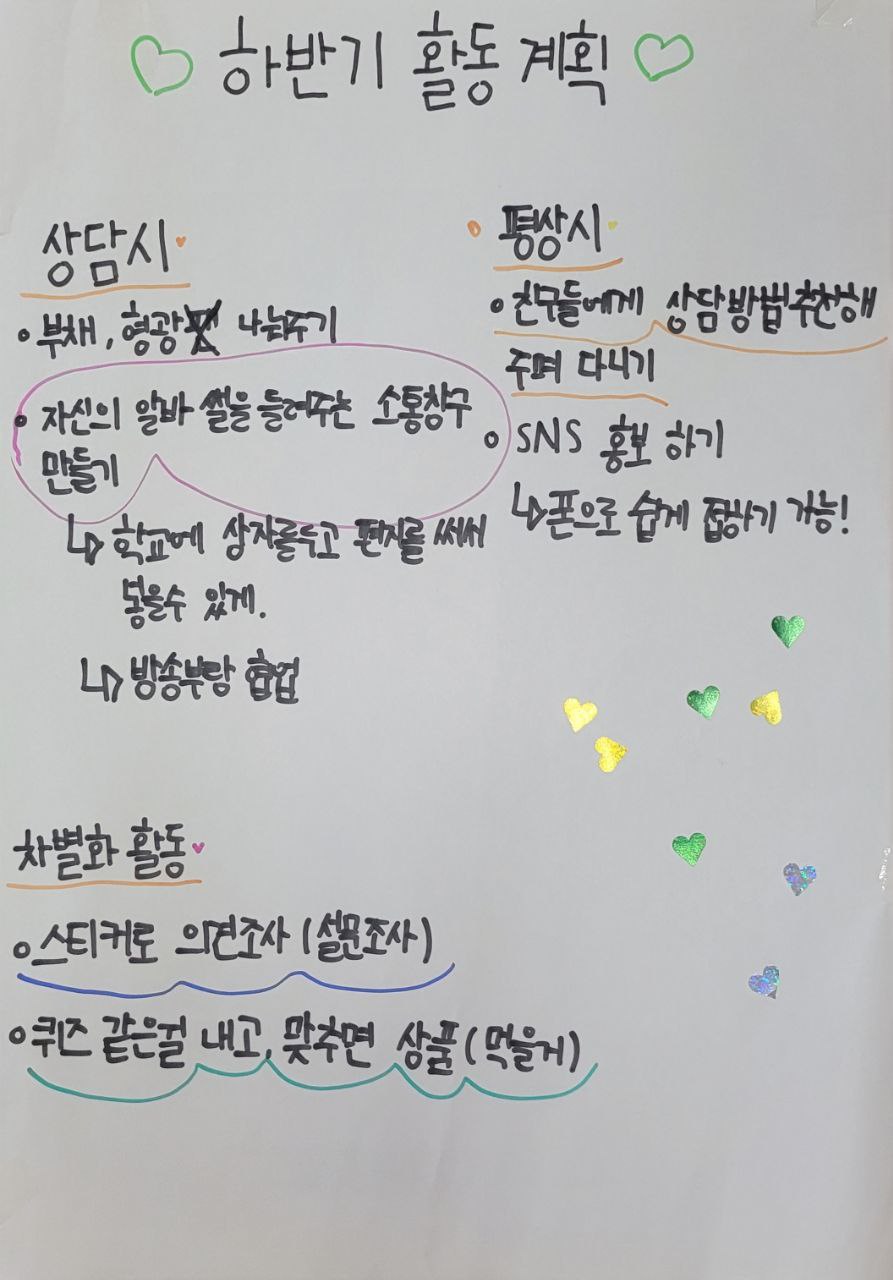 하반기 활동 계획
상담시
• 부채, 형광펜 나눠주기
• 자신의 알바 썰을 들려주는 소통창구
만들기
↳ 학교에 상자를두고 편지를 써서
넣을수 있게.
↳ 방송부랑 협업
평상시
• 친구들에게 상담방법추천해
주며 다니기
• SNS 홍보 하기
↳ 폰으로 쉽게 접하기 가능!
차별화 활동
• 스티커로 의견조사 (설문조사)
• 퀴즈 같은걸 내고, 맞추면 상품 (먹을거)